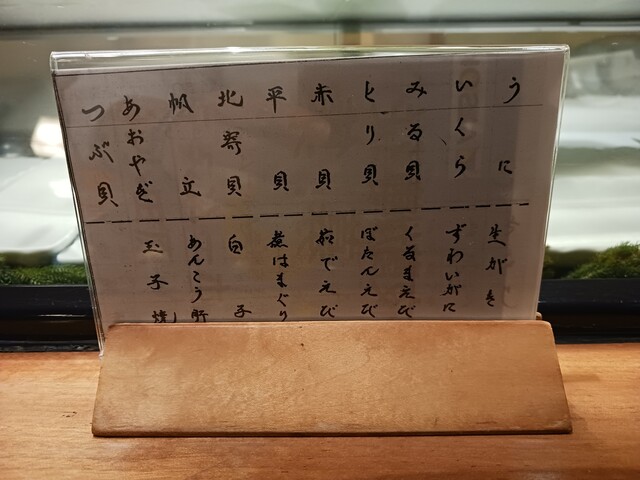 うに
いくら
みる貝
とり貝
赤貝
平貝
北寄貝
帆立
あおやぎ
つぶ貝
生がき
ずわいがに
くるまえび
ぼたんえび
茹でえび
煮はまぐり
白子
あんこう肝
玉子焼